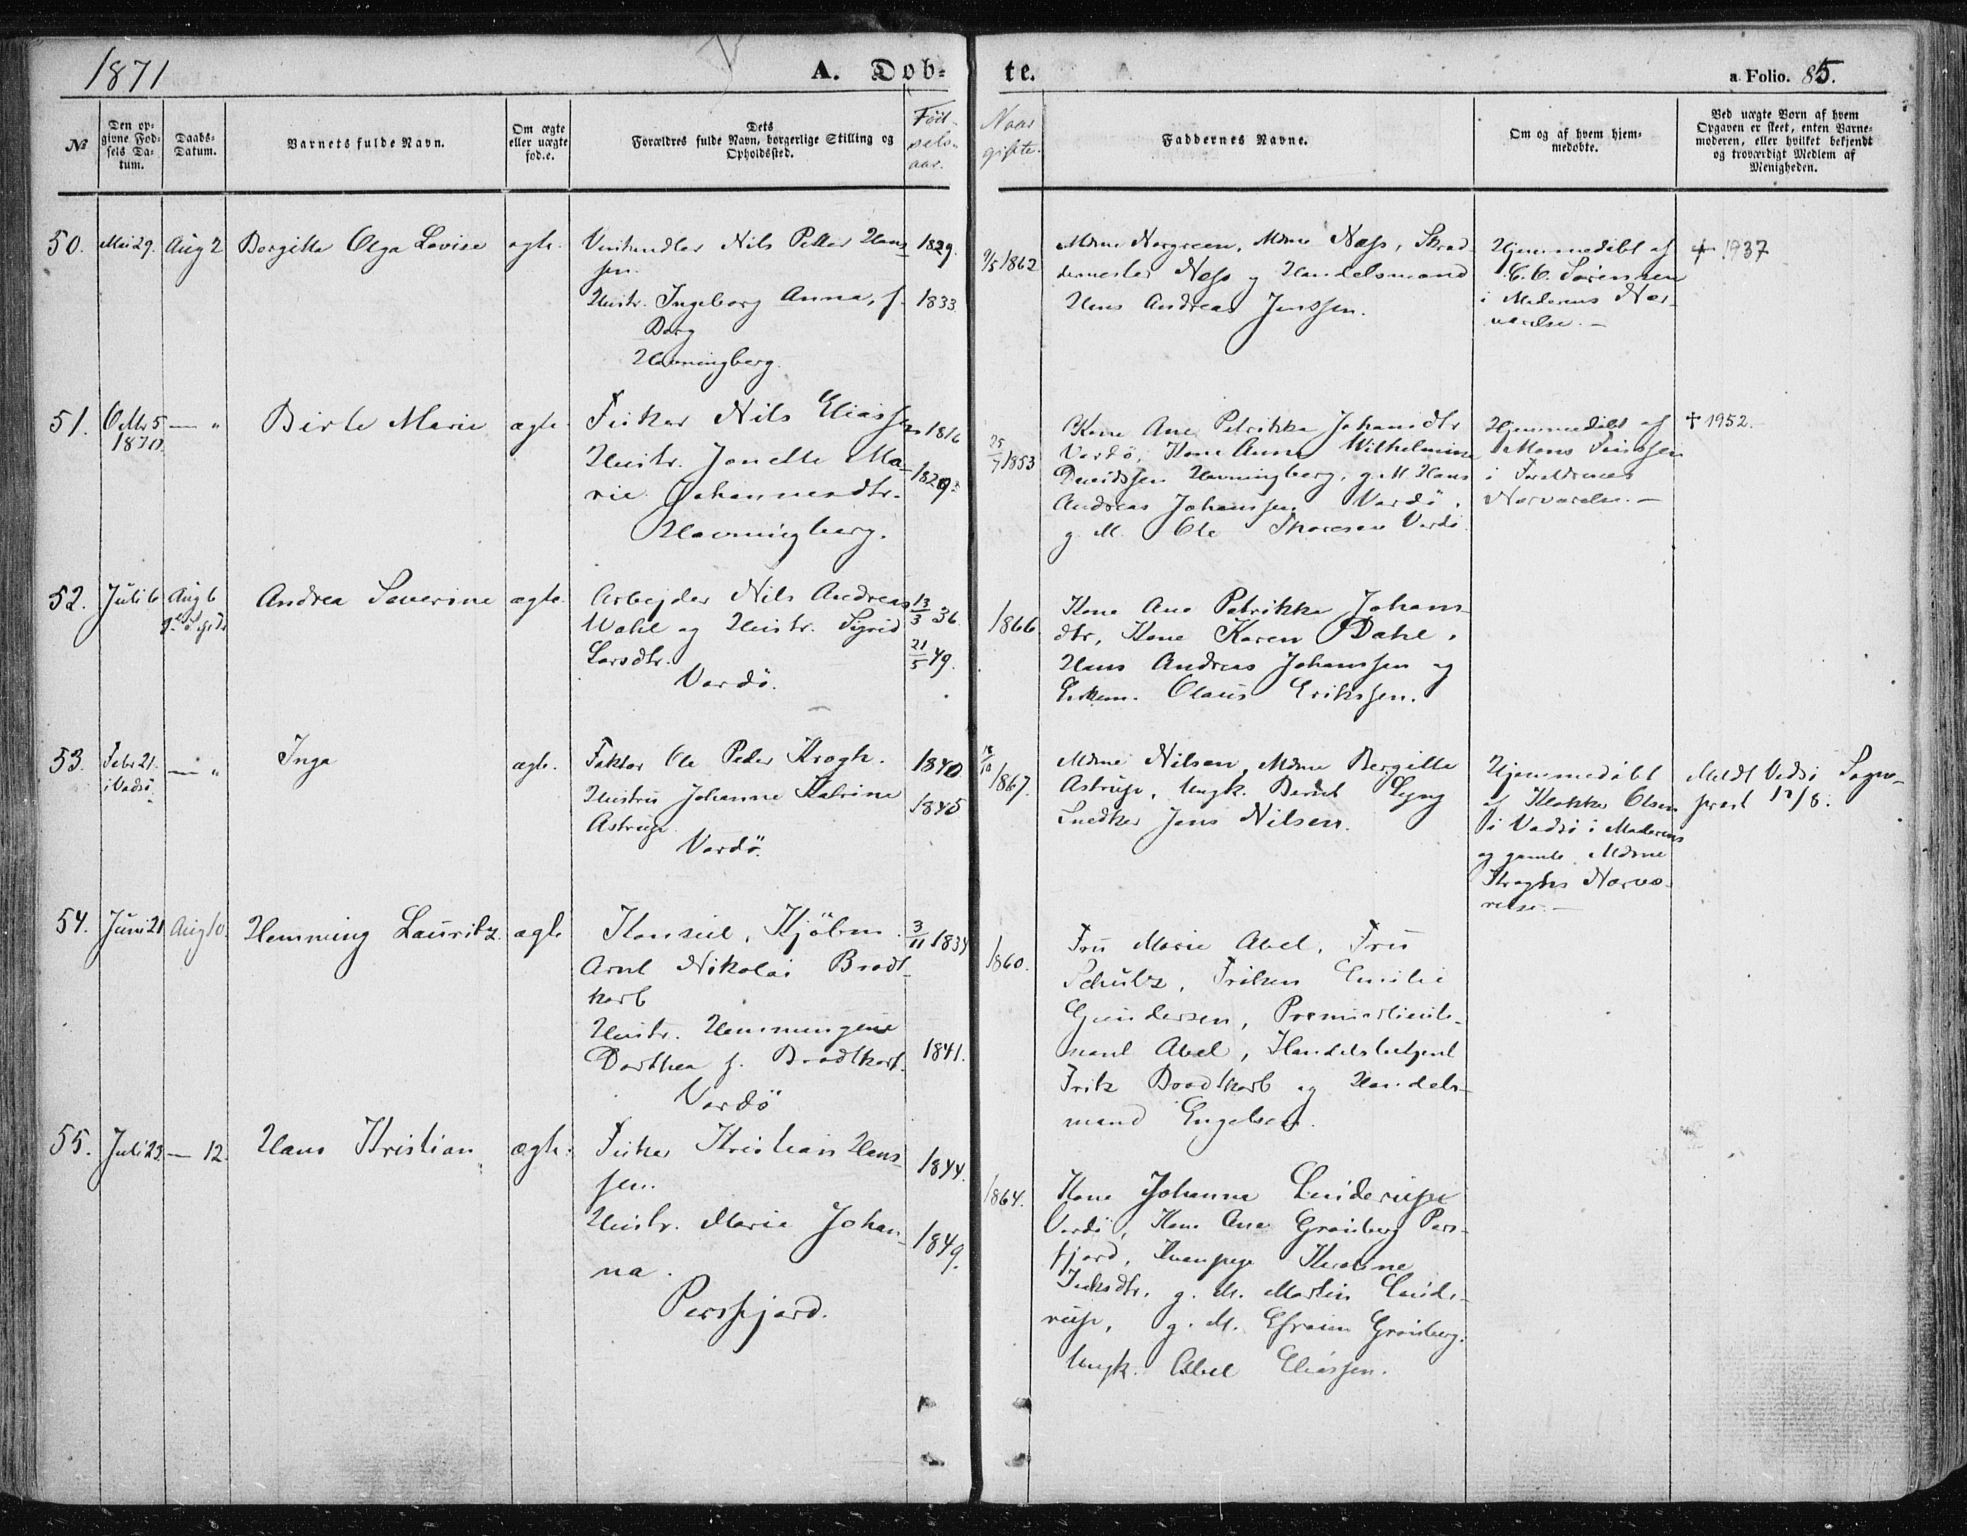 1871
A. Döb-
te.
a Folio. 85.
№
Den op-
givne Fød-
sels Da-
tum.
Daabs-
Datum.
Barnets fulde Navn.
Om ægte
eller uægte
fød.e.
Dets
Forældres fulde Navn, borgerlige Stilling og
Opholdssted.
Fød-
sels-
aar.
Naar
gifte.
Faddernes Navne.
Om og af hvem hjem-
medøbte.
Ved uægte Børn af hvem
Opgaven er skeet, enten Barne-
moderen, eller hvilket bekjendt
og troværdigt Medlem af
Menigheden.
50. Mai 29. Aug 2 Borgitte Olga Lovise ægte.
Nils Petter Hans-
sen.
Hustr. Ingeborg Anna, f.
Borg
Havningberg.
1829.
1833.
9/5 1862
Mdme Norgreen, Mdme Næss,
Næss og Handelsmand
Hans Andreas Jenssen.
Hjemmedøbt af
C. C. Sørensen
i Moderens Nær-
værelse. —
† 1937
51. Octbr 5
1870. — " Birte Marie ægte.
Fisker Nils Eliassen
Hustr. Jonette Ma-
rie Johannesdtr.
Havningberg.
1816
1829.
25/7 1853
Kone Ane Petrikke Johansdtr
Vardö, Kone Anna Wilhelmine
Davidssen Havningberg, g. M. Hans
Andreas Johanssen Vardö,
g. M. Ole Thoresen Vardö.
Hjemmedøbt af
Mons
i Forældrenes
Nærværelse. —
† 1952.
52. Juli 6 Aug 6
Andrea Severine ægte.
Arbejder Nils Andreas
Wahl og Hustr. Sigrid
Larsdtr.
Vardö.
13/3 36.
21/5 49.
1866
Kone Ane Petrikke Johans-
dtr, Kone Karen Dahl,
Hans Andreas Johanssen og
Enkem. Olaus Erikssen.
53. Febr 21.
i Vadsö. — " Inga ægte.
Faktor Ole Peder Krogh.
Hustru Johanne Katrine
Astrup.
Vardö.
1840
1845
18/10 1867.
Mdme Nilsen, Mdme Bergitte
Astrup, Ungk. Bernt Lyng
Snedker Jens Nilsen.
Hjemmedøbt
af Klokker Olsen
i Vadsö i Moderens
og gamle Mdme
Kroghs Nærvæ-
relse. —
Meldt Vadsö Sogne-
prest 12/8.
54. Juni 21 Aug 10. Hemming Lauritz. ægte
Konsul, Kjöbm.
Arnt Nikolai Brodt-
korb
Hustr. Hemmingine
Dorthea f. Brodtkorb.
Vardö
3/11 1834
1841.
1860.
Fru Marie Abel, Fru
Schultz, Frøken Emilie
Gundersen, Premierlieute-
nant Abel, Handelsbetjent
Fritz Brodtkorb og Handels-
mand Engelsen.
55. Juli 23. — 12. Hans Kristian ægte.
Fisker Kristian Hans-
sen.
Hustr. Maria Johan-
na.
Persfjord.
1844.
1849.
1864.
Kone Johanna Linderupe
Vardö, Kone Ane Grönberg Pers-
fjord,
g. M. Martin Linde-
rupe, g. M. Efraim Grönberg.
Ungk. Abel Eliassen.